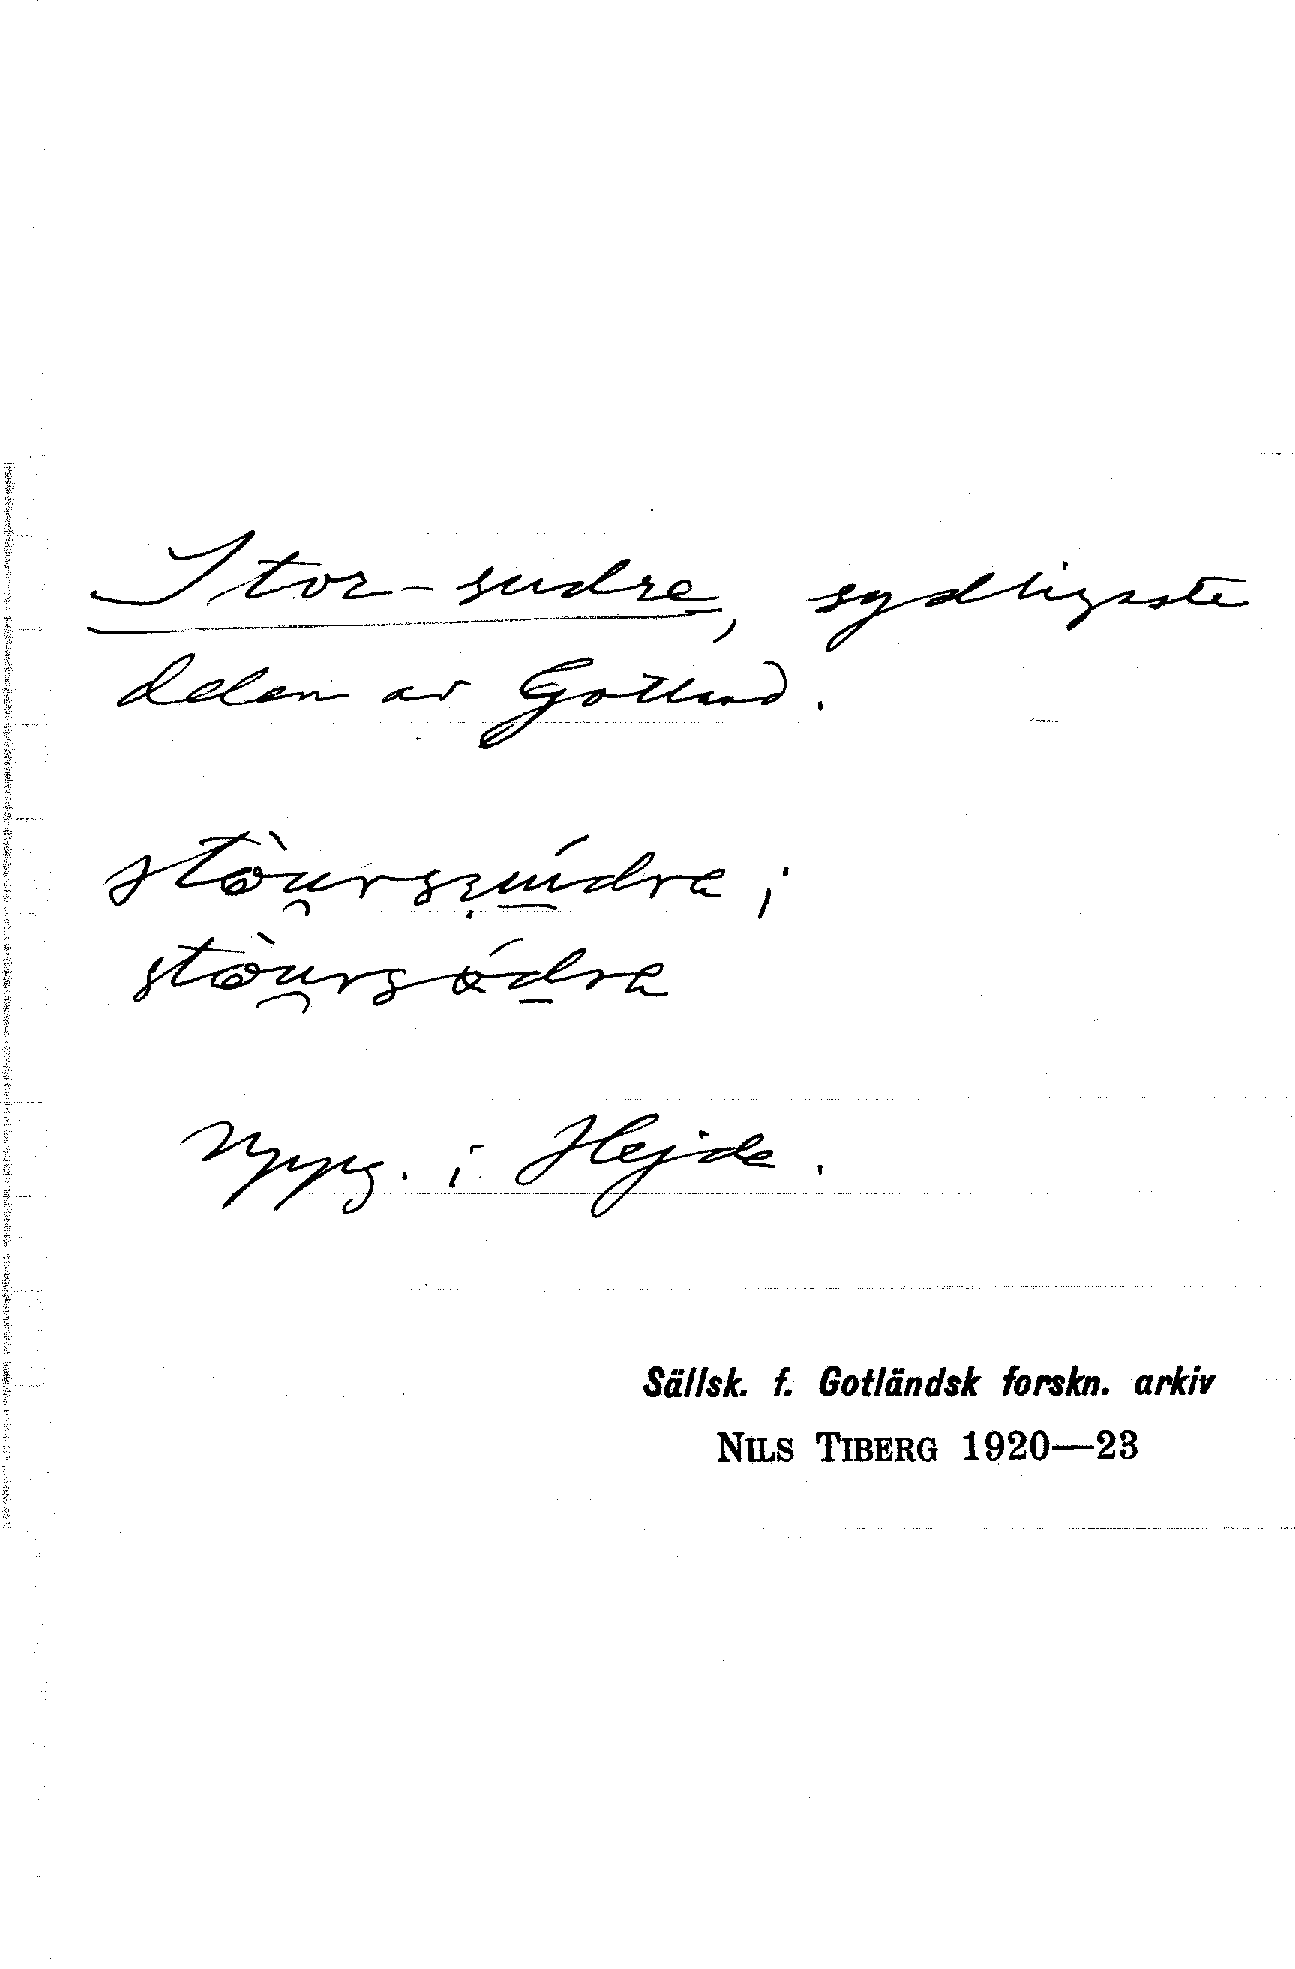 Stor-sudre, sydligaste
delen av Gotland.
stòu̯rsú̱dra;
stòu̯rsó̱dra
Uppg. i Hejde.
Sällsk. f. Gotländsk forskn. arkiv
NILS TIBERG 1920—23